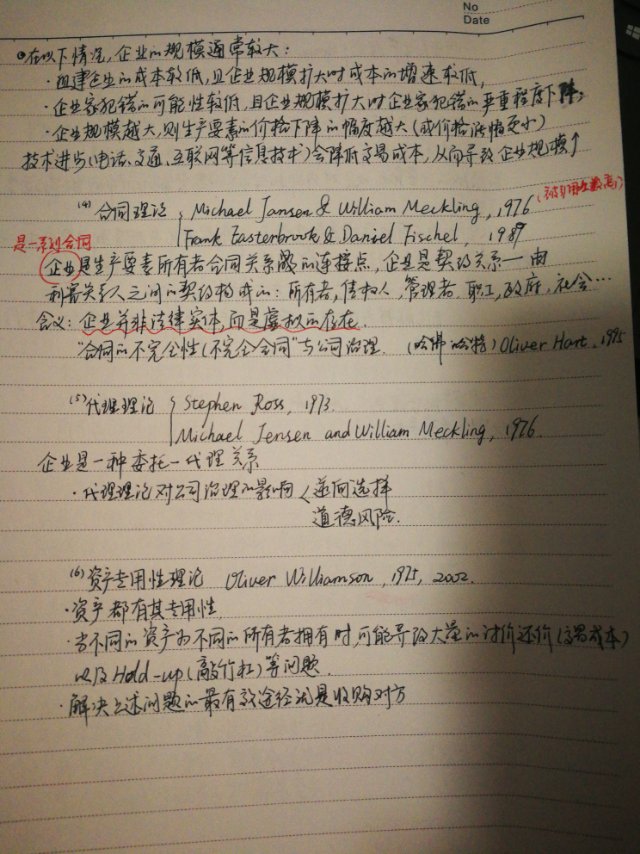 No
Date
在以下情况，企业的规模通常较大：
·组建企业的成本较低，且企业规模扩大时成本的增速较低，
·企业家犯错的可能性较低，且企业规模扩大时企业家犯错的严重程度下降；
·企业规模越大，则生产要素的价格下降的幅度越大（或价格涨幅更小）
技术进步（电话、交通、互联网等信息技术）会降低交易成本，从而导致企业规模↑
(4) 合同理论 { Michael Jansen & William Meckling, 1976
（被引用次数高）
Frank Easterbrook & Daniel Fischel, 1989
是一系列合同
企业是生产要素所有者合同关系的连接点，企业是契约关系—由
利害关系人之间的契约构成的：所有者，债权人，管理者，职工，政府，社会…
含义：企业并非法律实体，而是虚拟的存在.
“合同的不完全性（不完全合同”与公司治理. （哈佛 哈特）Oliver Hart, 1995
(5) 代理理论 { Stephen Ross, 1973
Michael Jensen and William Meckling, 1976.
企业是一种委托—代理关系
·代理理论对公司治理的影响 < 逆向选择
道德风险.
(6) 资产专用性理论 Oliver Williamson, 1975, 2002.
·资产都有其专用性
·当不同的资产为不同的所有者拥有时，可能导致大量的讨价还价（交易成本）
以及Hold-up（敲竹杠）等问题.
·解决上述问题的最有效途径就是收购对方